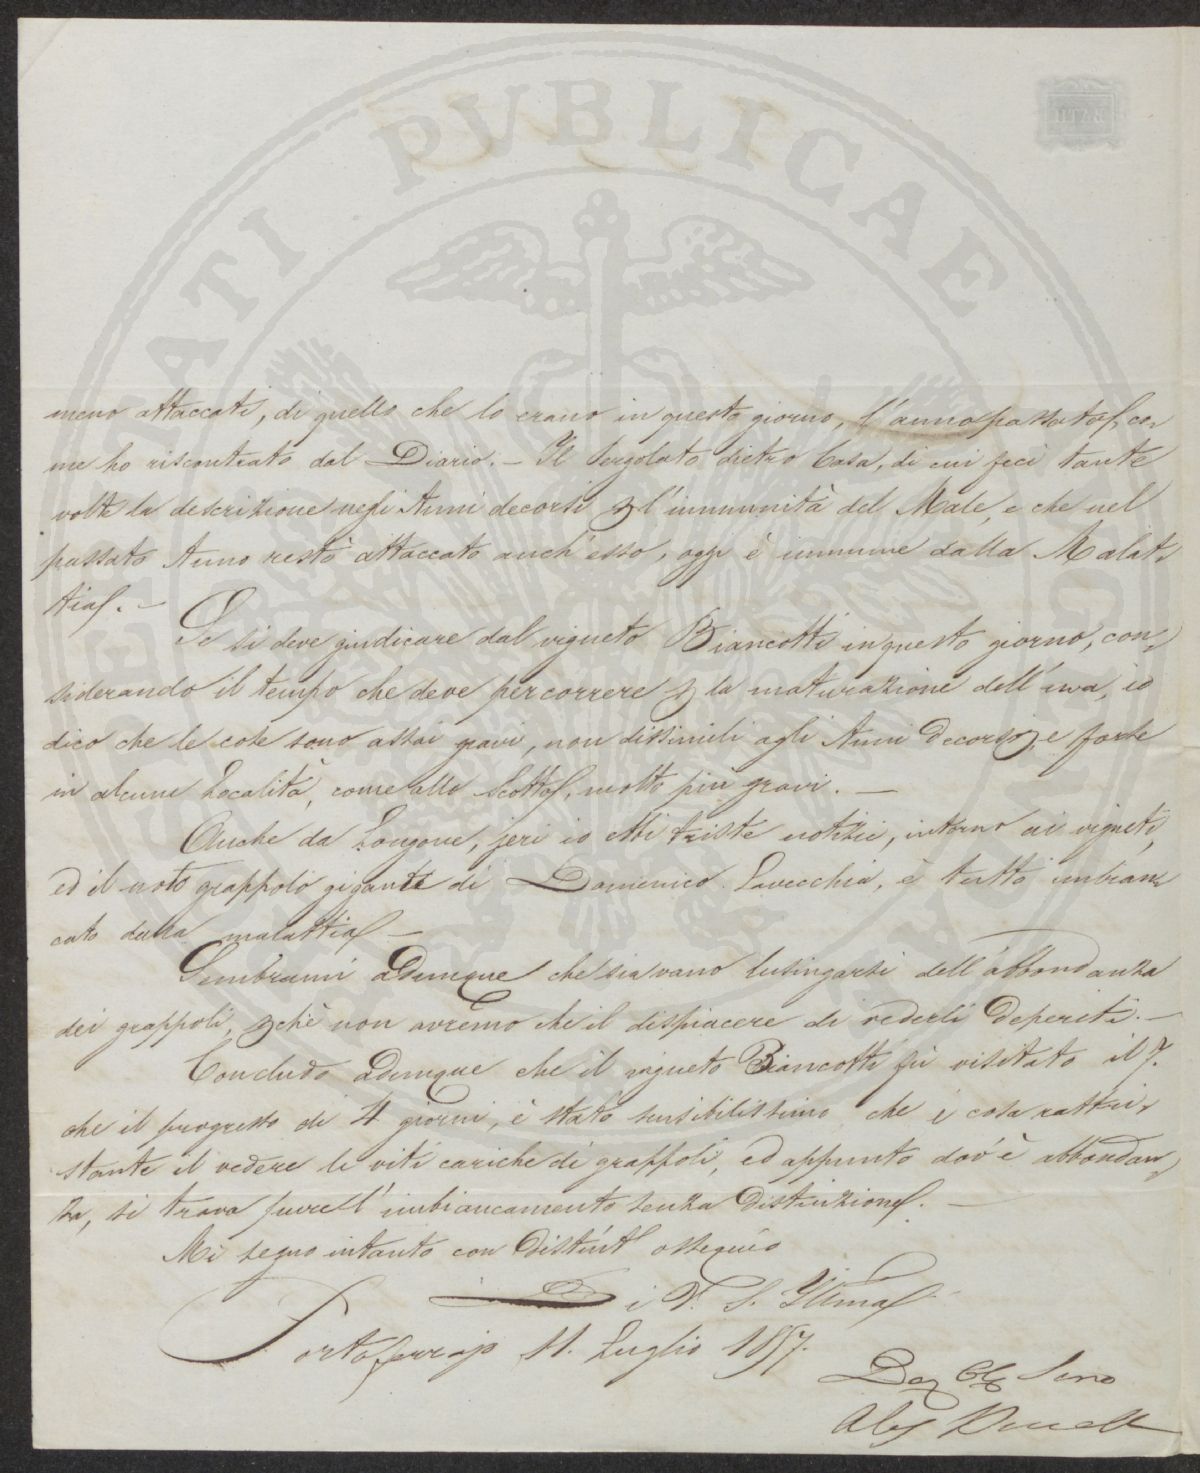 meno attaccati, di quello che lo erano in questo giorno, l'anno passato, co,
me ho riscontrato dal Diario. – Il Pergolato dietro Casa, di cui feci tante
volte la descrizione negli Anni decorsi p l'immunità del Male, e che nel
passato Anno restò attaccato anch'esso, oggi è immune dalla Malat,
tia. –
Se si deve giudicare dal vigneto Biancotti in questo giorno, con,
siderando il tempo che deve percorrere p la maturazione dell'uva, io
dico che le cose sono assai gravi, non dissimili agli Anni decorsi, e forse
in alcune Località, come allo Scotto, molto più gravi. –
Anche da Longone, jeri io ebbi triste notizie, intorno ai vigneti,
ed il noto grappolo gigante di Domenico Lavecchia, è tutto imbian,
cato dalla malattia –
Sembrami Adunque che sia vano lusingarsi dell'abbondanza
dei grappoli, pchè non avremo che il dispiacere di vederli deperiti. –
Concludo Adunque che il vigneto Biancotti fù visitato il 7.
che il progresso di 4 giorni, è stato sensibilissimo che è cosa rattri,
stante il vedere le viti cariche di grappoli, ed appunto dov'è abbondan,
za, si trova pure l'imbiancamento senza distinzione. –
Mi segno intanto con distint ossequio
Di V. S. Illma
Portoferrajo 11. Luglio 1857.
Dev Obb Servo
PVBLICAE